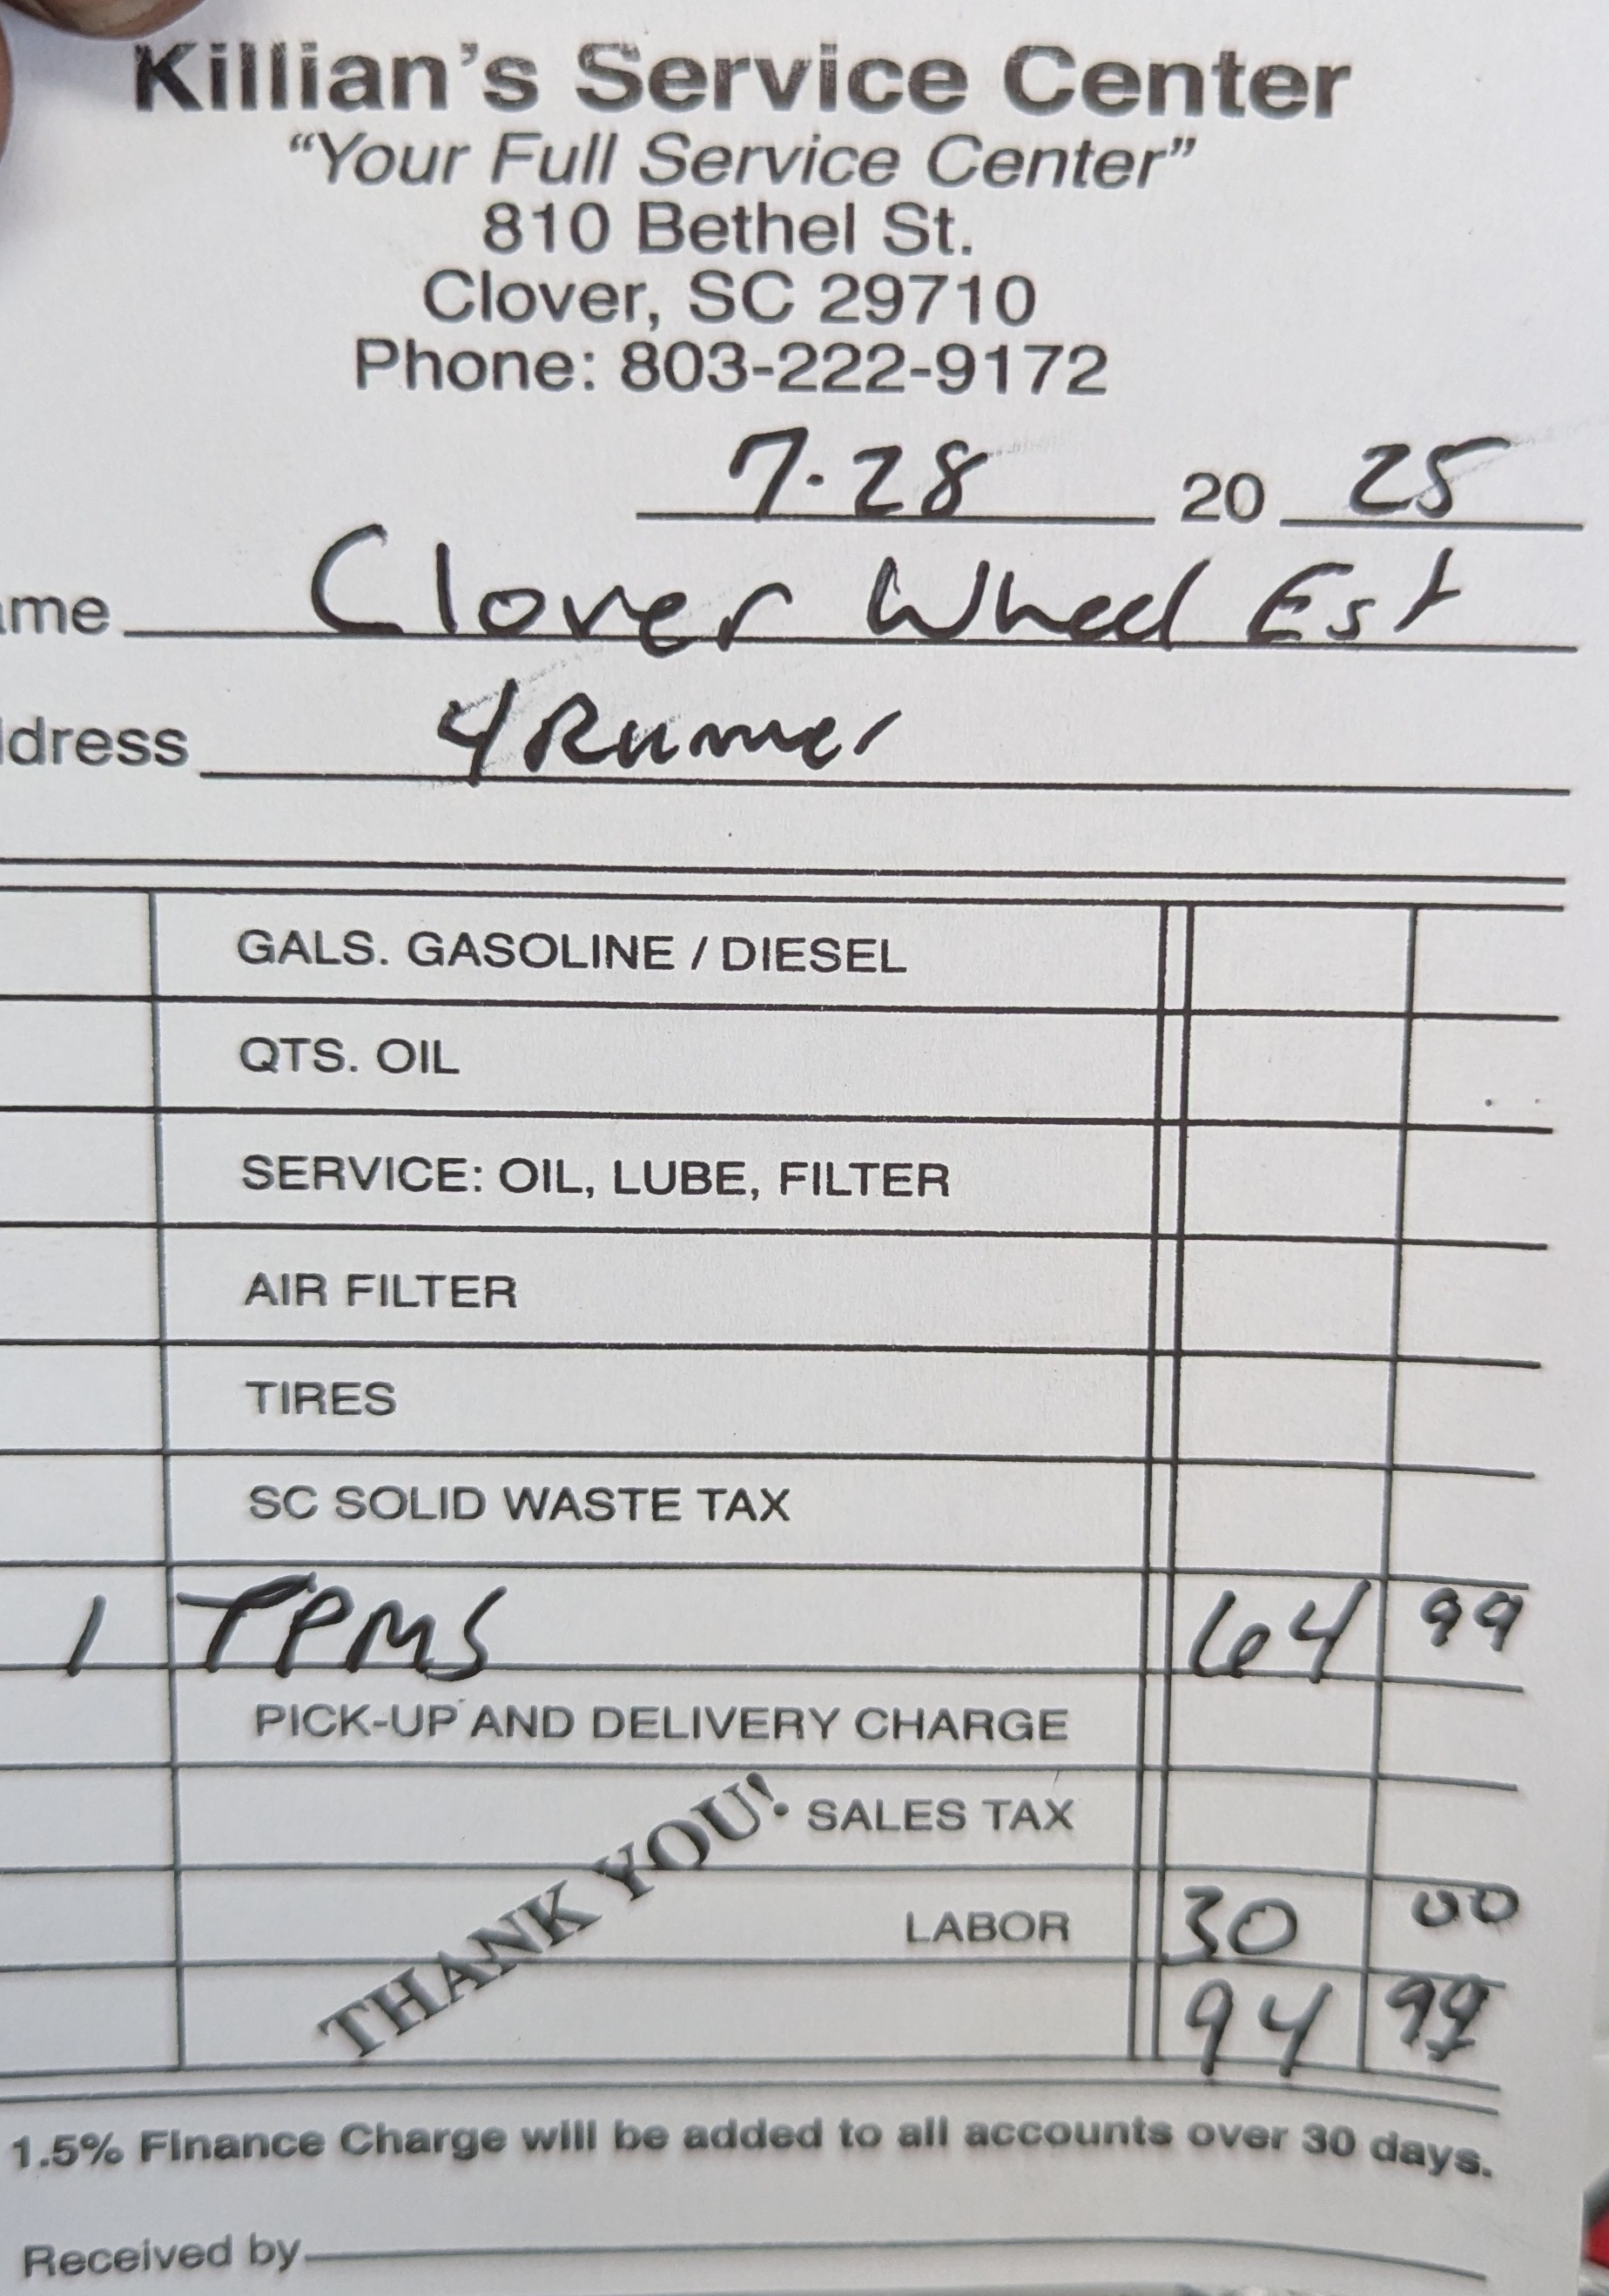 Killian's Service Center
"Your Full Service Center"
810 Bethel St.
Clover, SC 29710
Phone: 803-222-9172
7·28 20 25
ame Clover Wheel Est
ddress 4Runner
GALS. GASOLINE / DIESEL
QTS. OIL
SERVICE: OIL, LUBE, FILTER
AIR FILTER
TIRES
SC SOLID WASTE TAX
1 TPMS 64 99
PICK-UP AND DELIVERY CHARGE
SALES TAX
LABOR 30 00
THANK YOU!
94 99
1.5% Finance Charge will be added to all accounts over 30 days.
Received by